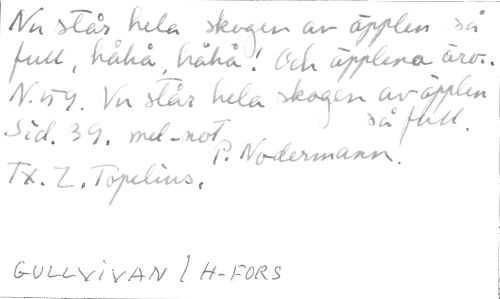 Nu står hela skogen av äpplen så
full, håhå, håhå! Och äpplena äro..
N. 59. Nu står hela skogen av äpplen
så full.
Sid. 39. mel-not P. Nodermann.
Tx. Z. Topelius.
GULLVIVAN / H-FORS